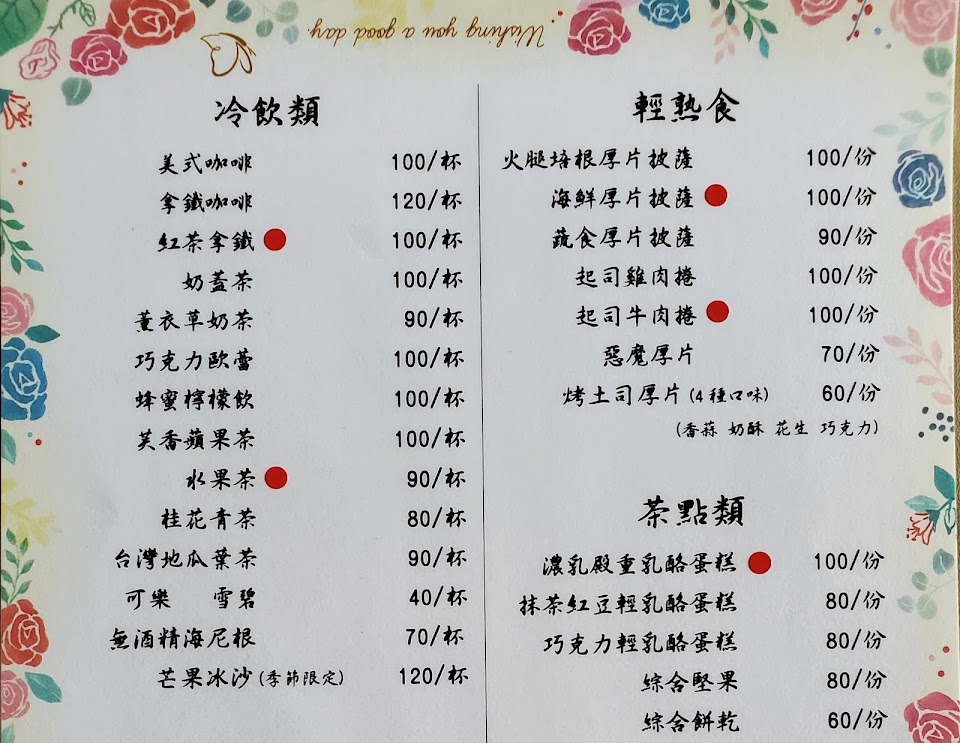 Wishing you a good day
冷飲類
美式咖啡 100/杯
拿鐵咖啡 120/杯
紅茶拿鐵 100/杯
奶蓋茶 100/杯
薰衣草奶茶 90/杯
巧克力歐蕾 100/杯
蜂蜜檸檬飲 100/杯
芙香蘋果茶 100/杯
水果茶 90/杯
桂花青茶 80/杯
台灣地瓜葉茶 90/杯
可樂 雪碧 40/杯
無酒精海尼根 70/杯
芒果冰沙(季節限定) 120/杯
輕熟食
火腿培根厚片披薩 100/份
海鮮厚片披薩 100/份
蔬食厚片披薩 90/份
起司雞肉捲 100/份
起司牛肉捲 100/份
惡魔厚片 70/份
烤土司厚片(4種口味) 60/份
(香蒜 奶酥 花生 巧克力)
茶點類
濃乳殿重乳酪蛋糕 100/份
抹茶紅豆輕乳酪蛋糕 80/份
巧克力輕乳酪蛋糕 80/份
綜合堅果 80/份
綜合餅乾 60/份